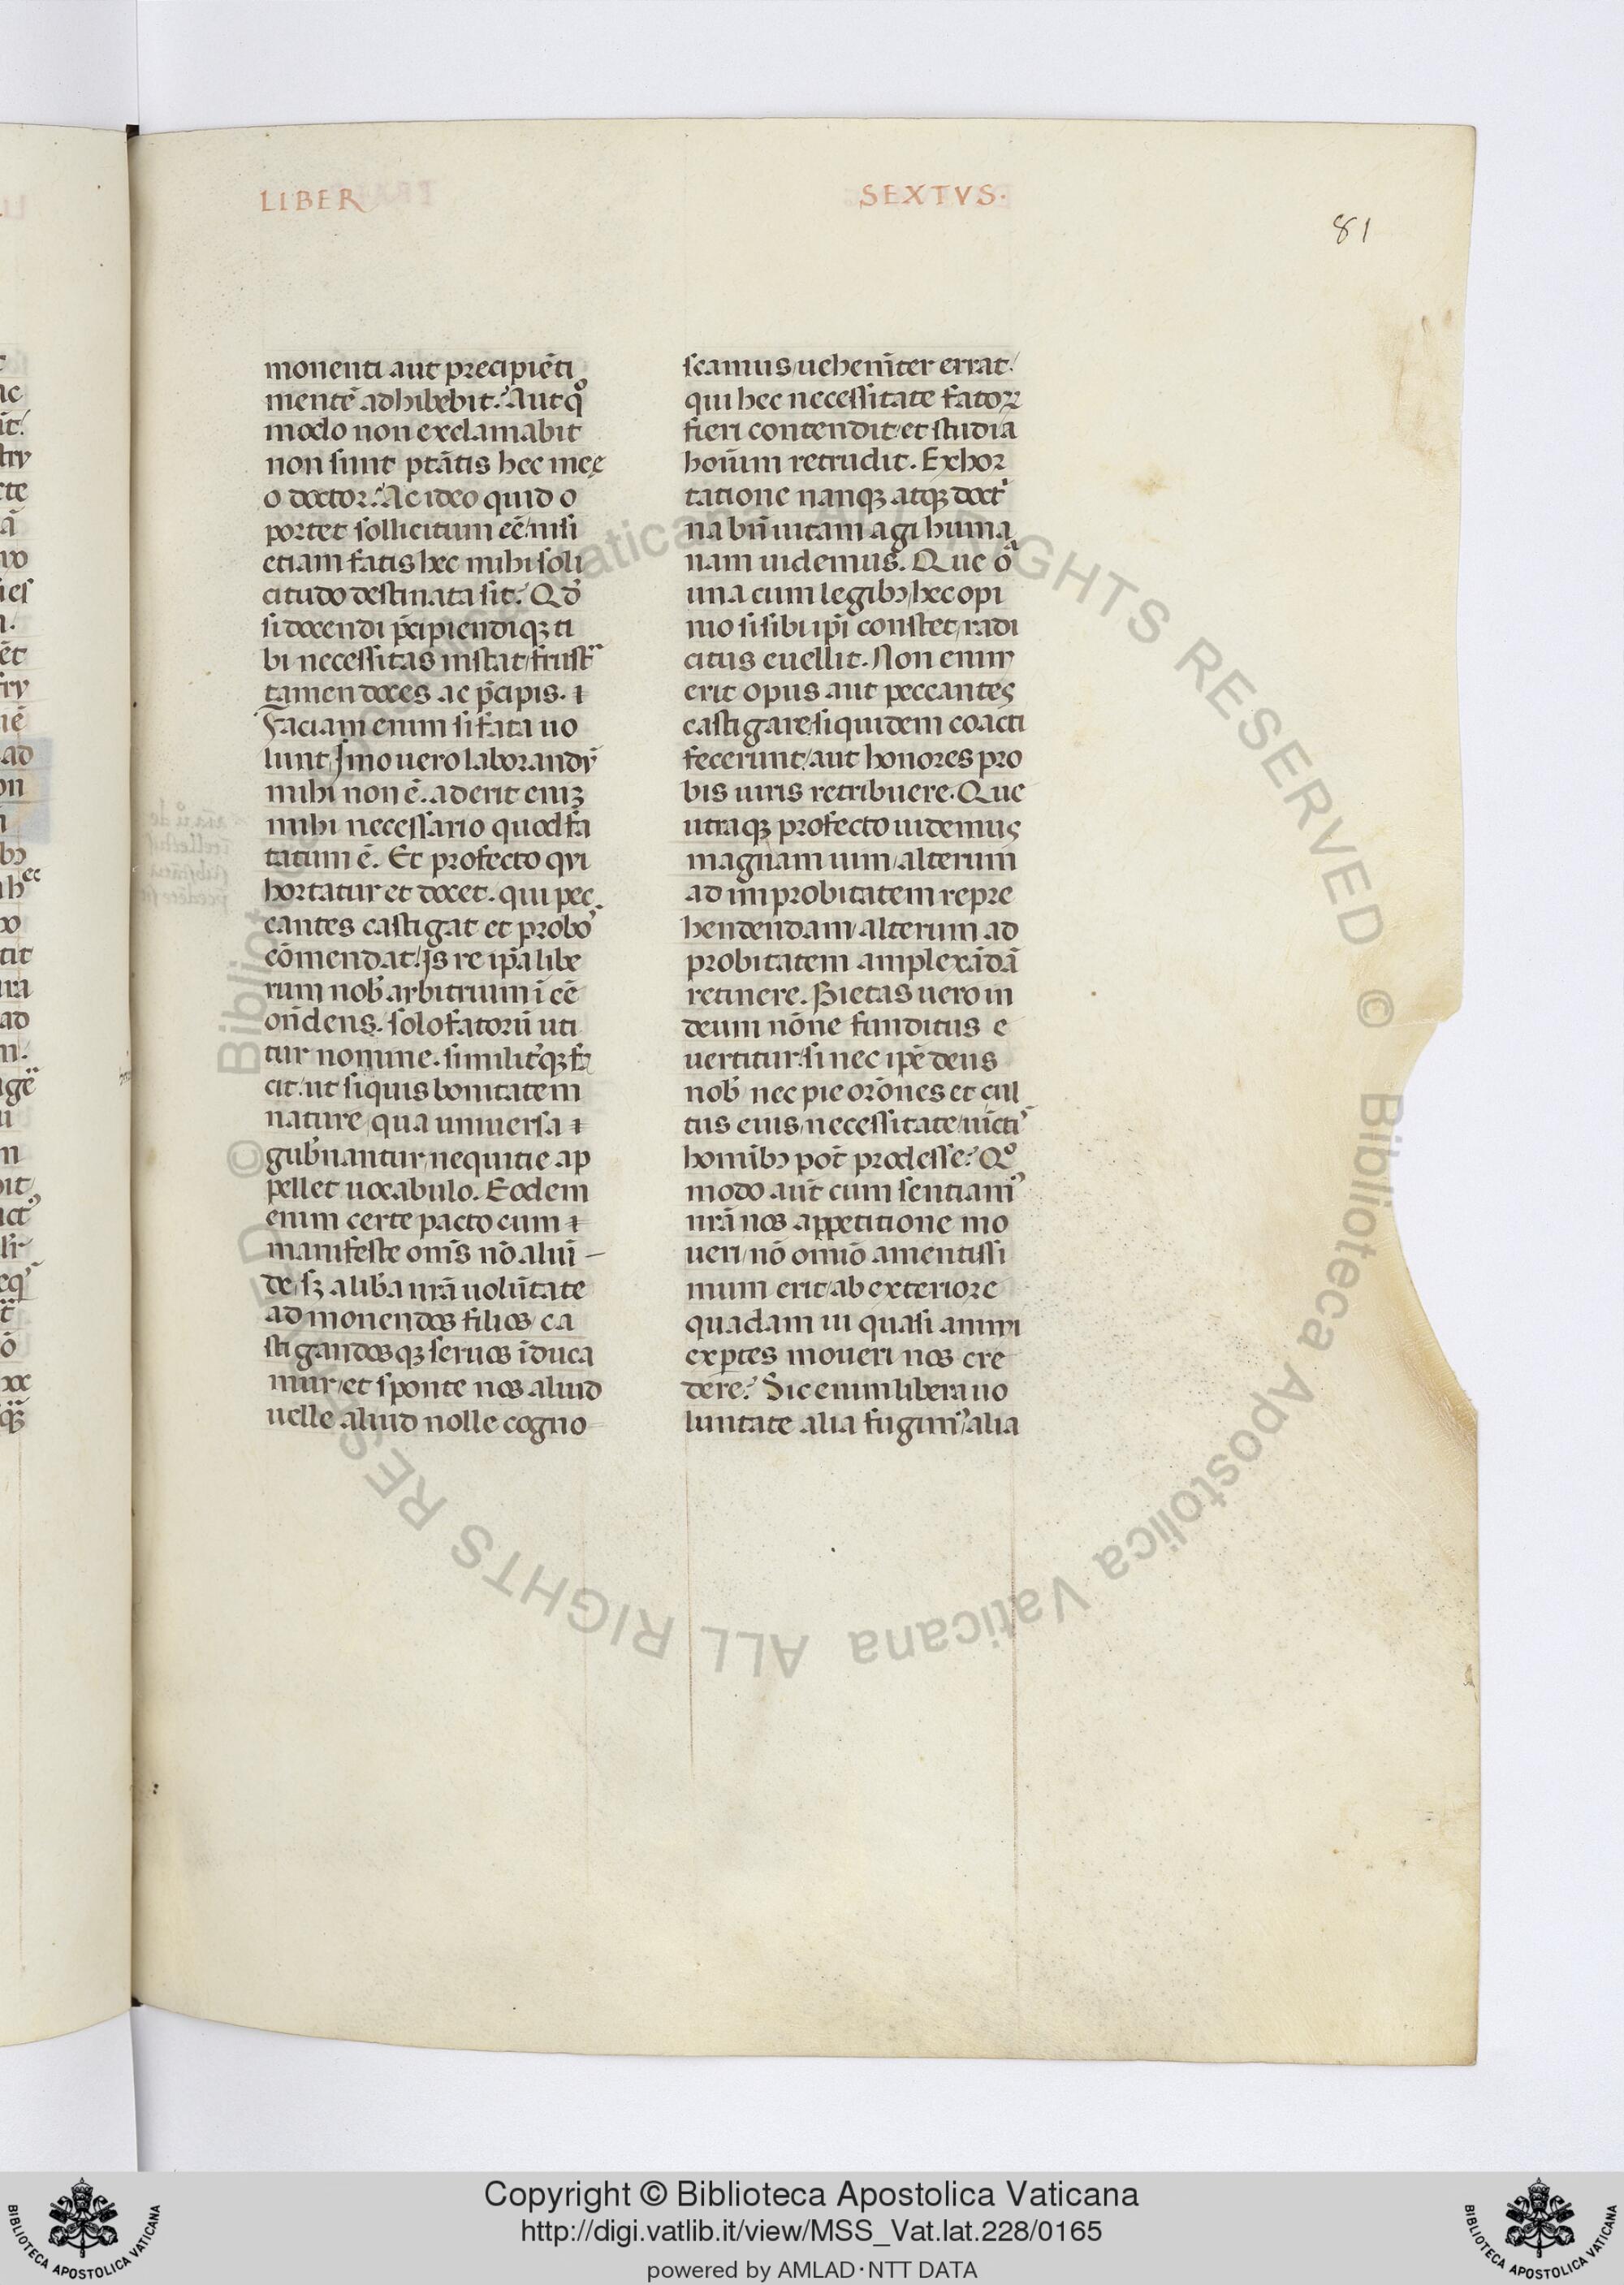 LIBER
SEXTVS.
81
monenti aut precipiēti
mentē adhibebit? Aut qͦ
modo non exclamabit
non sunt ptātis hec meę
o doctor? Ac ideo quid o
portet sollicitum eē/ nisi
etiam fatis hec mihi soli
citudo destinata sit? Qđ
si docendi p̄cipiendiqꝫ ti
bi necessitas instat/ frustᵃ
tamen doces ac p̄cipis.
Faciam enim si fata uo
lunt/ Jmo uero laborandū
mihi non ē. aderit eniꝫ
mihi necessario quod fa
tatum ē. Et profecto qui
hortatur et docet. qui pec
cantes castigat et probos
cōmendat/ Js re ip̄a libe
rum nob̄ arbitrium ī eē
on̄dens. solo fatorū uti
tur nomine. similit̓qꝫ fa
cit/ ut siquis bonitatem
nature/ qua uniuersa
gub̄nantur/ nequitie ap
pellet uocabulo. Eodem
enim certe pacto cum
manifeste om̄s nō aliū
de/ sꝫ alib̓a nrā volūtate
ad monendos filios/ ca
stigandosqꝫ seruos īduca
mur/ et sponte nos aliud
uelle aliud nolle cogno
scamus/ uehemēter errat/
qui hec necessitate fatoꝝ
fieri contendit/ et studia
hoīum retrudit. Exhor
tatione nanqꝫ atqꝫ doctⁱ
na bn̄ uitam agi huma
nam uidemus. Que oᵃ
una cum legibꝫ/ hec opi
nio si sibi ip̄i constet/ radi
citus euellit. Non enim
erit opus aut peccantes
castigare/ siquidem coacti
fecerunt/ aut honores pro
bis uiris retribuere. Que
utraqꝫ profecto uidemus
magnam uim/ alterum
ad improbitatem repre
hendendam/ alterum ad
probitatem amplexādā
retinere. Pietas uero in
deum nōne funditus e
uertitur/ si nec ip̄e deus
nob̄ nec pie orōnes et cul
tus eius/ necessitate/ uīctis
homībꝫ pōt prodesse? Qͦ
modo aūt cum sentiamꝰ
nrā nos appetitione mo
ueri/ nō omīo amentissi
mum erit/ ab exteriore
quadam ui quasi animi
exp̱tes moueri nos cre
dere? Sic enim libera uo
luntate alia fugimꝰ/ alia
Copyright © Biblioteca Apostolica Vaticana
http://digi.vatlib.it/view/MSS_Vat.lat.228/0165
powered by AMLAD·NTT DATA
BIBLIOTECA APOSTOLICA VATICANA
BIBLIOTECA APOSTOLICA VATICANA
© Biblioteca Apostolica Vaticana ALL RIGHTS RESERVED © Biblioteca Apostolica Vaticana ALL RIGHTS RESERVED